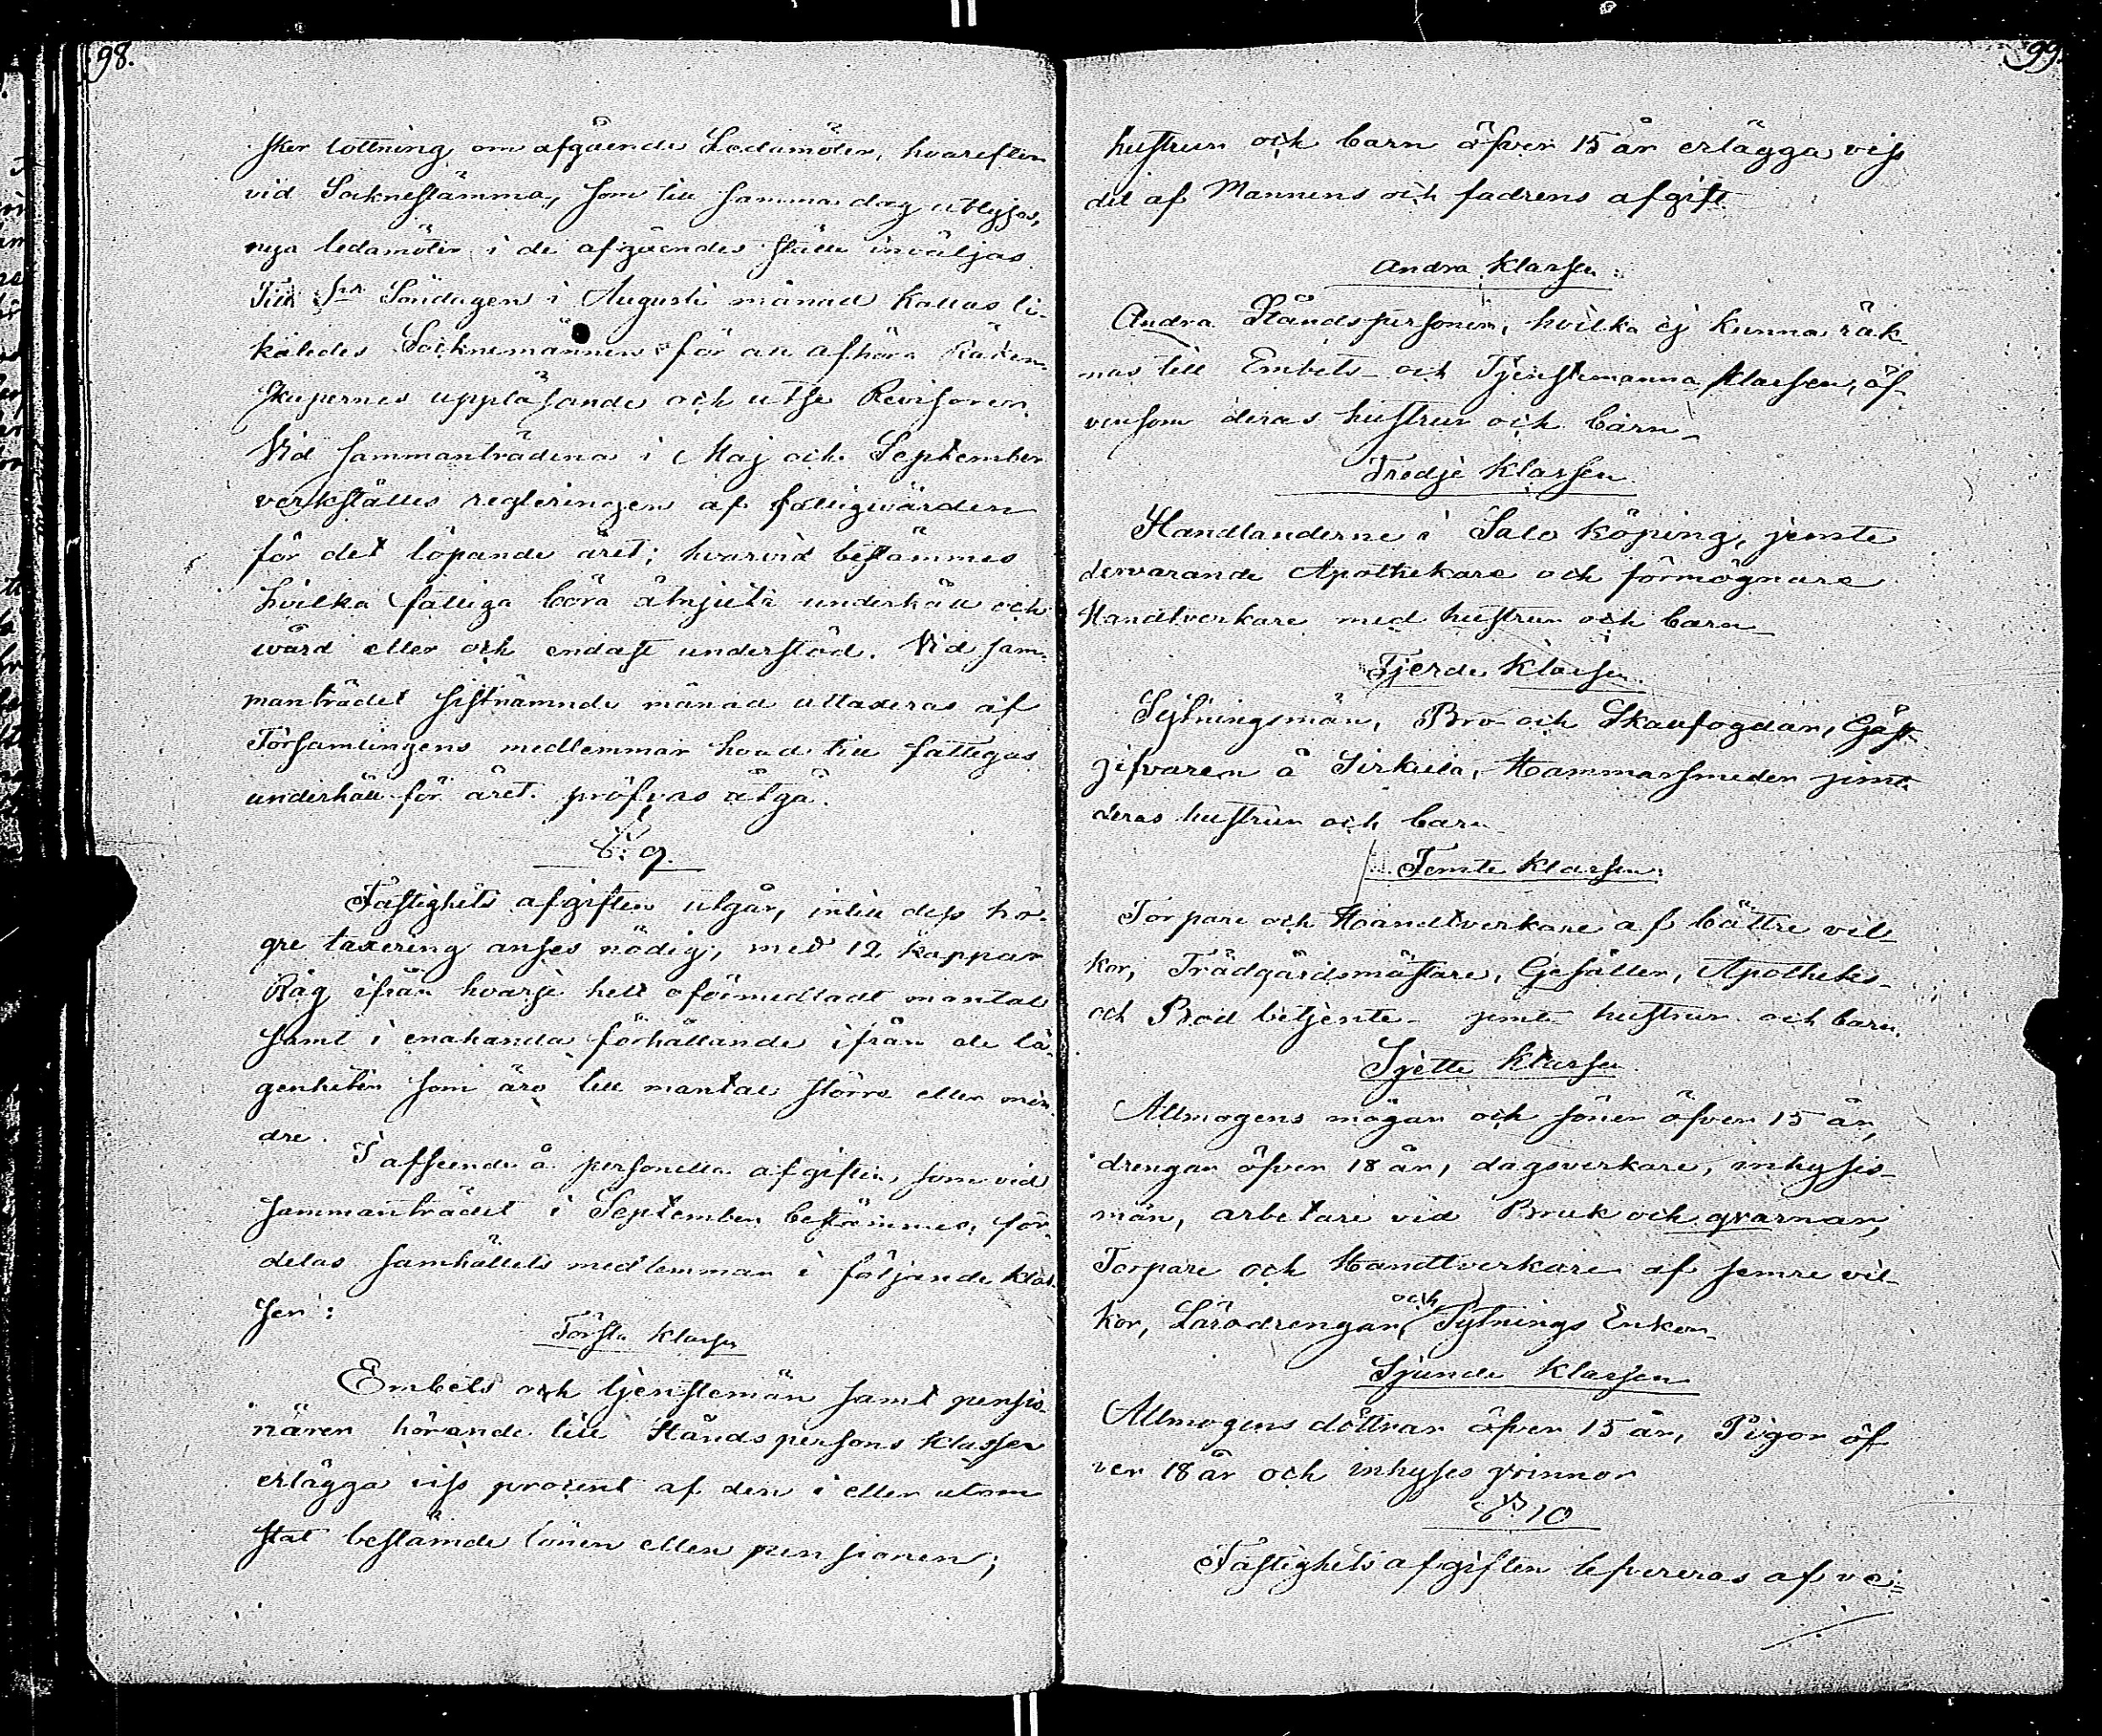 98.
sker lottning om afgående Ledamöter, hvarefter
vid Socknestämma, som till samma dag utlyses,
nya ledamöter i de afgåendes ställe inväljas
Till Söndagen i Augusti månad kallas li-
kaledes Socknemännen för att afhöra Räken-
skapernes uppläsande och utse Revisorer.
Vid sammanträdena i Maj och September
verkställes regleringen af fattigvården
för det löpande året; hvarvid bestämmes
hvilka fattiga böra åtnjuta underhåll och
wård eller och endast understöd. Vid sam-
manträdet sistnämnde månad uttaxeras af
Församlingens medlemmar hvad till fattigas
underhåll för året pröfvas åtgå.
§. 9.
Fastighets afgiften utgår, intill dess hö-
gre taxering anses nödig, med 12 kappar
Råg ifrån hvarje helt oförmedladt mantal
samt i enahanda förhållande ifrån de lä-
genheter som äro till mantal större eller min-
dre.
I afseende å personella afgiften, som vid
sammanträdet i September bestämmes, för-
delas samhällets medlemmar i följande klas-
ser:
Första Klassen
Embets och tjenstemän samt pensio-
närer hörande till Ståndspersons klassen
erlägga viss procent af den i eller utom
stat bestämde lönen eller pensionen;
99.
hustrun och barn öfver 15 år erlägga viss
del af Mannens och fadrens afgift
Andra Klassen:
Andra Ståndspersoner, hvilka ej kunna räk-
nas till Embets- och Tjenstemanna klassen, äf-
vensom deras hustrur och barn-
Tredje Klassen
Handlanderne i Salo köping, jemte
dervarande Apothekare och förmögnare
Handtverkare med hustrur och barn-
Fjerde Klassen.
Sytningsmän, Bro- och Skallfogdar, Gäst-
gifvaren å Sirkula, Hammarsmeder jemte
deras hustrur och barn-
Femte Klassen:
Torpare och Handtverkare af bättre vil-
kor, Trädgårdsmästare, Gesäller, Apotheks-
och Bod betjente- jemte hustrur och barn.
Sjette Klassen
Allmogens mågar och söner öfver 15 år,
drengar öfver 18 år, dagsverkare, inhyses-
män, arbetare vid Bruk och qvarnar,
Torpare och Handtverkare af semre vil-
kor, Läródrengar, och Sytnings Enkor-
Sjunde Klassen
Allmogens döttrar öfver 15 år, Pigor öf
ver 18 år och inhyses qvinnor
§. 10
Fastighets afgiften lefvereras af ve-